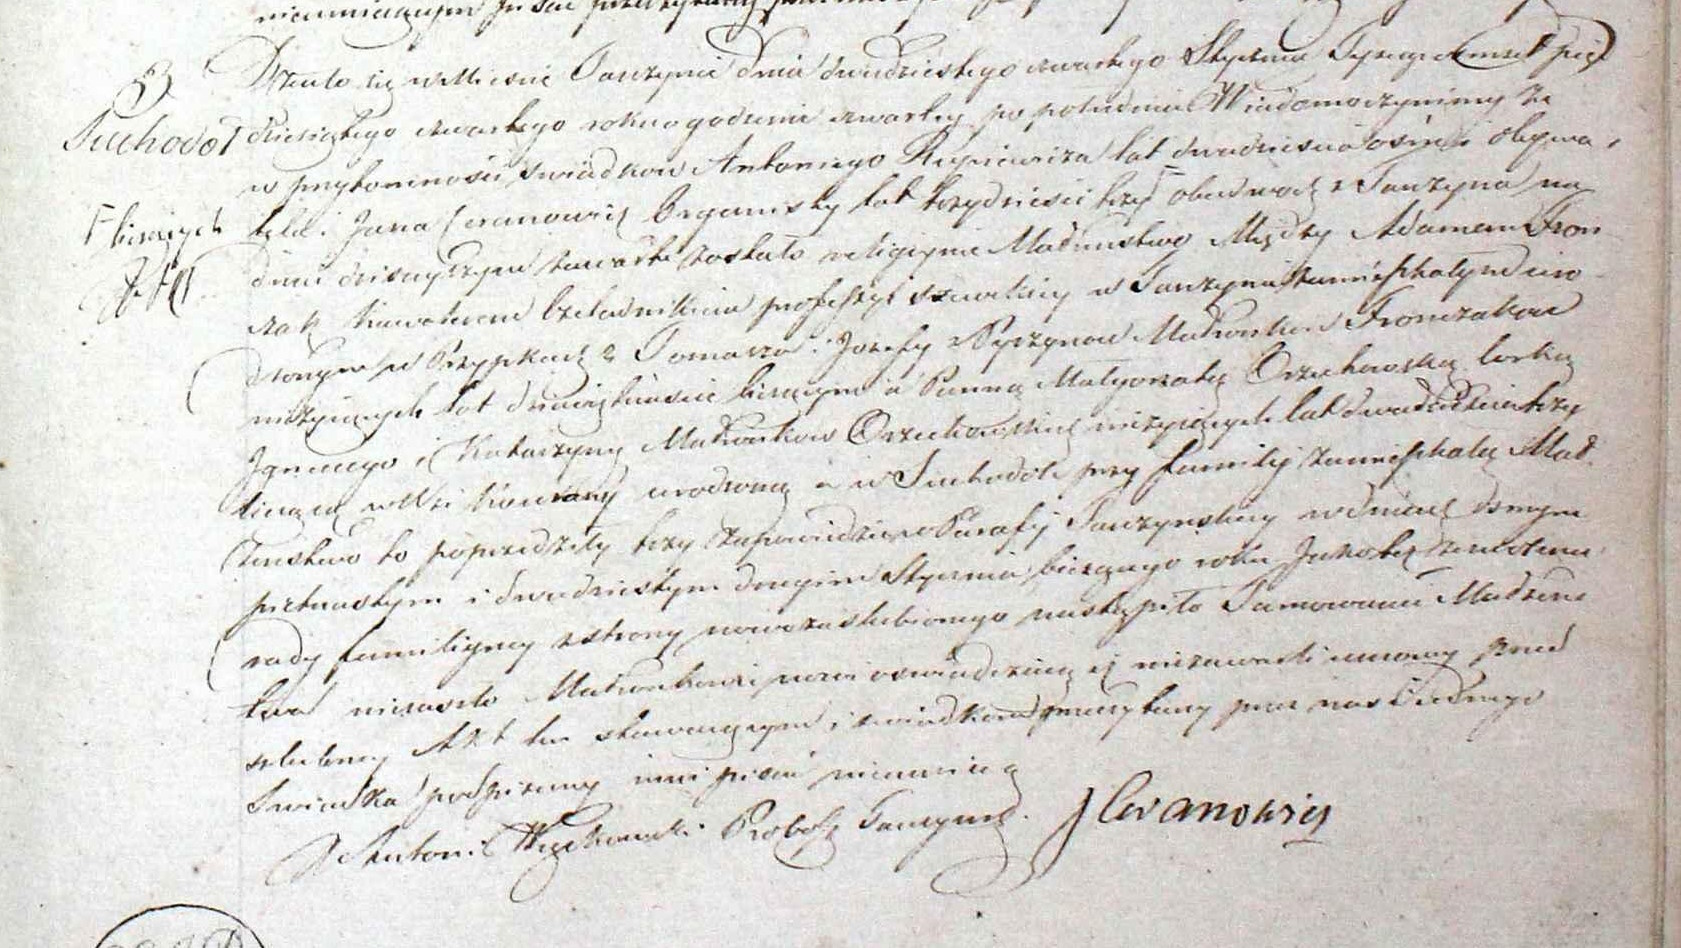 3
Suchodół
Działo się w Mieście Tarczynie dnia dwudziestego czwartego Stycznia Tysiąc ośmset pięć
dziesiątego czwartego roku o godzinie czwartej po południu Wiadomo czynimy że
w przytomności świadków Antoniego lat dwadzieścia ośm obywa
tela i Jana Ceranowicz Organisty lat trzydzieści trzy Γ obudwóch z Tarczyna na
Γ liczących
dniu dzisiejszym zawarte zostało religijne Małżeństwo Między Adamem Fron
czak kawalerem Czeladnikiem professyi szewckiej w Tarczynie zamieszkałym uro
dzonym w Przypkach z Tomasza i Józefy Małżonków Fronczaków
nieżyjących lat dwadzieścia liczącym a Panną Małgorzatą Orzechowską Córką
Ignacego i Katarzyny Małżonków Orzechowskich nieżyjących lat dwadzieścia trzy
liczącą w Wsi urodzoną a w Suchodole przy familij zamieszkałą Mał
żeństwo to poprzedziły trzy zapowiedzie w Parafij Tarczyńskiej w dniach ósmym
piętnastym i dwudziestym drugim Stycznia bieżącego roku Jako też zezwolenie
rady familijnej z strony nowozaślubionego nastąpiło Tamowanie Małżeń
stwa niezaszło Małżonkowie nowi oświadczają iż niezawarli umowy przed
ślubnej Akt ten stawającym i świadkom przeczytany przez nas i jednego
Świadka podpisany inni pisać nieumieją
X Antoni Proboszcz Tarczyńs. J Ceranowicz